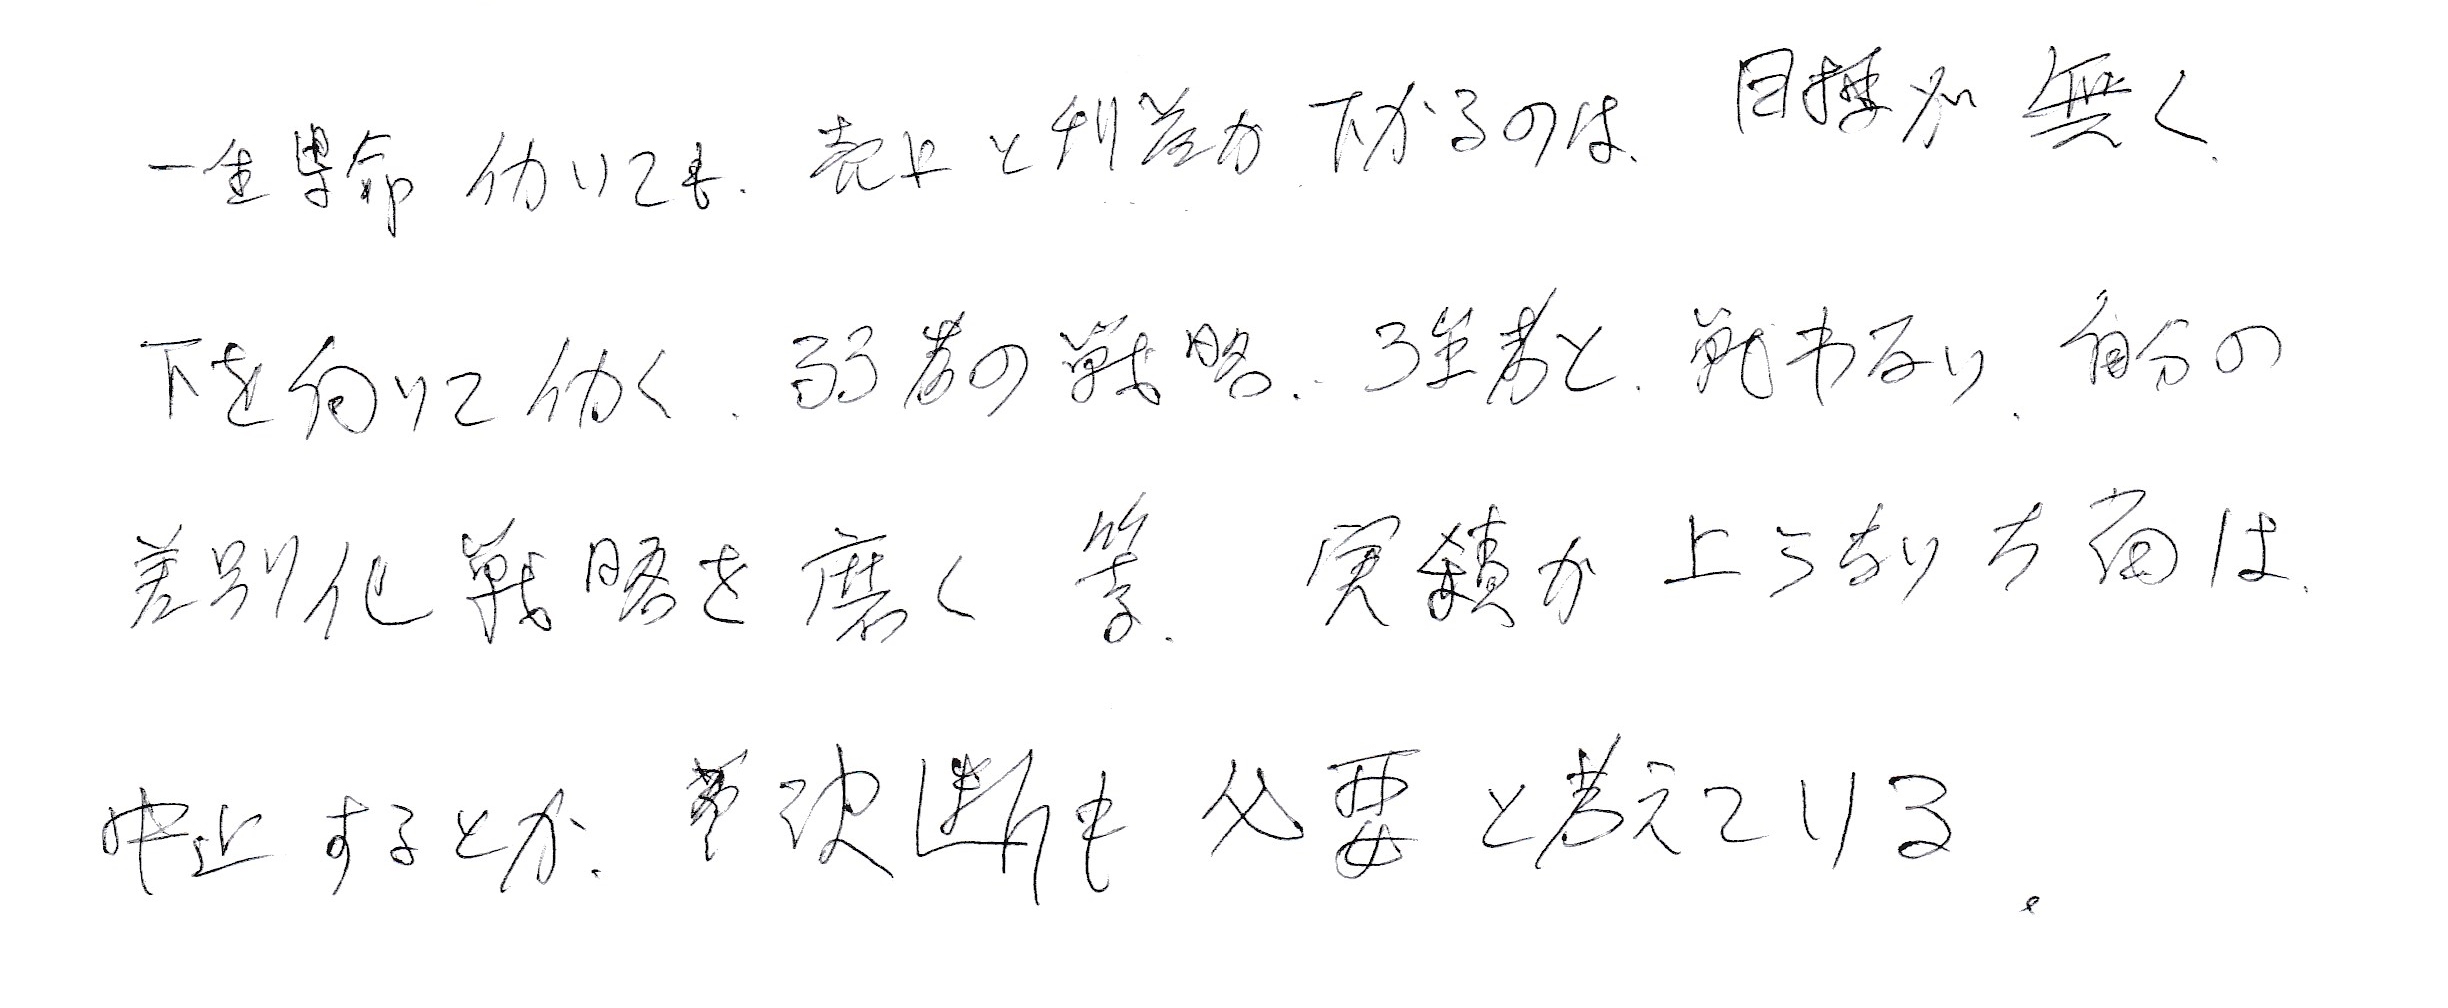 一生懸命働いても、売上と利益が下がるのは、目標が無く、
下を向いて働く、弱者の戦略、強者と、戦わない、自分の
差別化戦略を磨く等、実績が上らない方面は、
中止するとか、決断も必要と考えている。